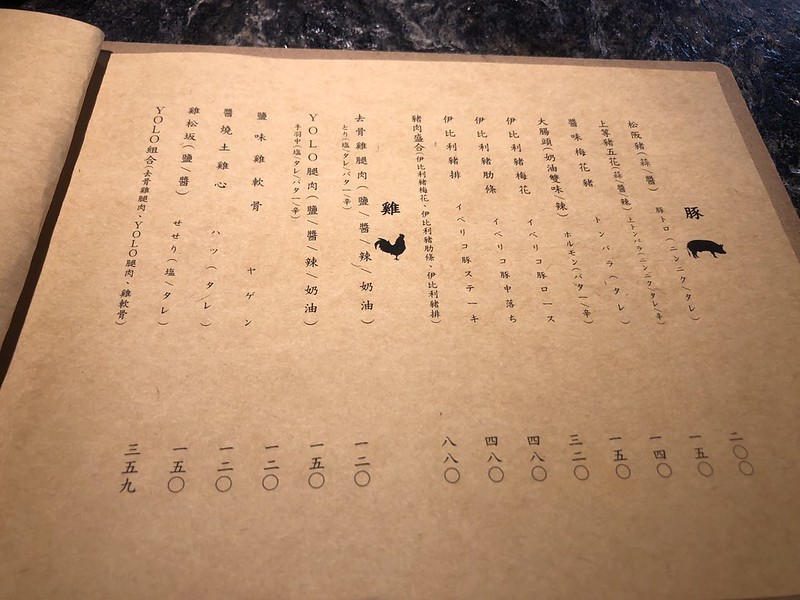 豚
松阪豬(蒜/醬)
豚トロ(ニンニク/タレ)
二〇〇
上等豬五花(蒜/醬/辣)
上トンバラ(ニンニク/タレ/辛)
一五〇
醬味梅花豬
トンバラ(タレ)
一四〇
大腸頭(奶油雙味/辣)
ホルモン(バター/辛)
一五〇
伊比利豬梅花
イベリコ豚ロース
三二〇
伊比利豬肋條
イベリコ豚中落ち
四八〇
伊比利豬排
イベリコ豚ステーキ
四八〇
豬肉盛合(伊比利豬梅花、伊比利豬肋條、伊比利豬排)
八八〇
雞
去骨雞腿肉(鹽/醬/辣/奶油)
とり(塩/タレ/バター/辛)
一二〇
YOLO腿肉(鹽/醬/辣/奶油)
手羽中(塩/タレ/バター/辛)
一五〇
鹽味雞軟骨
ヤゲン
一二〇
醬燒土雞心
ハツ(タレ)
一二〇
雞松坂(鹽/醬)
せせり(塩/タレ)
一五〇
YOLO組合(去骨雞腿肉、YOLO腿肉、雞軟骨)
三五九